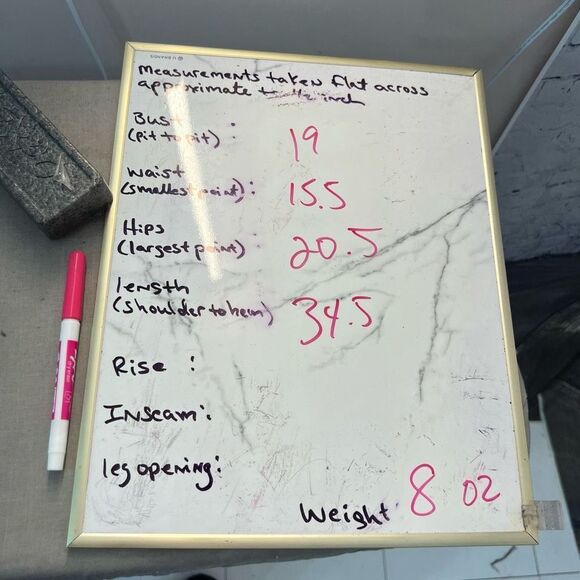 U BRANDS
measurements taken flat across
approximate to 1/2 inch
Bust :
(pit to pit) 19
waist
(smallest point): 15.5
Hips
(largest point) 20.5
length
(shoulder to hem) 34.5
Rise :
Inseam:
leg opening:
Weight 8 oz